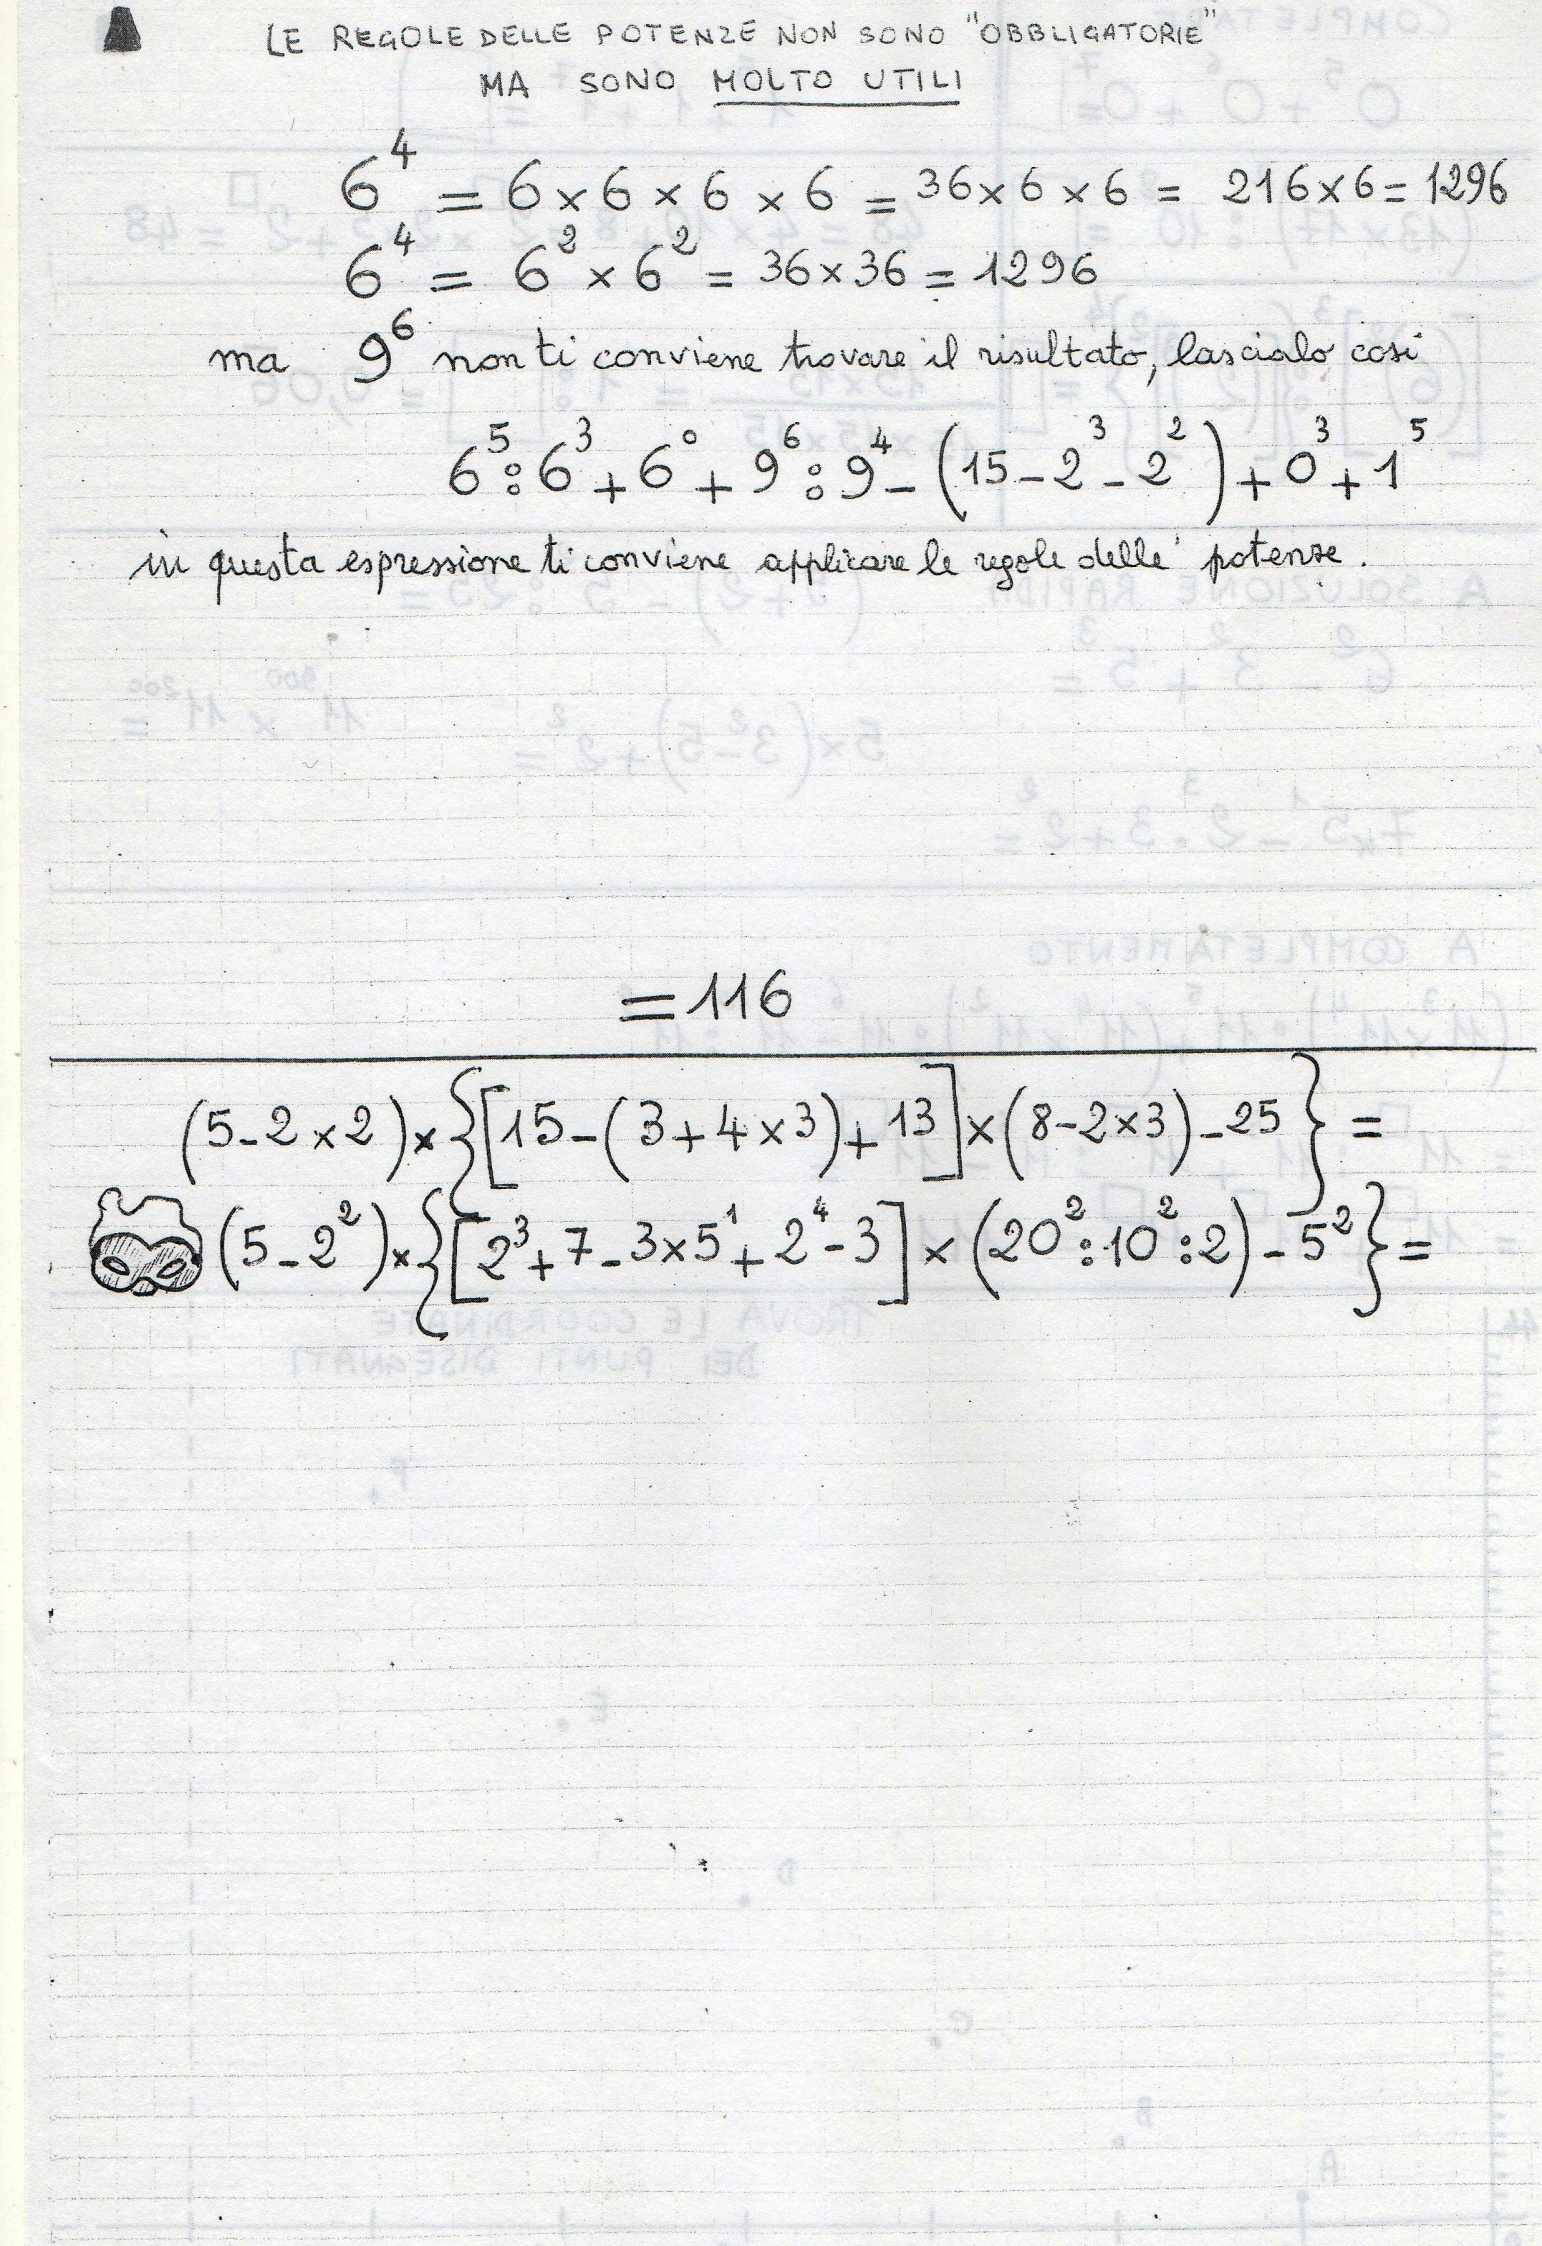 LE REGOLE DELLE POTENZE NON SONO "OBBLIGATORIE"
MA SONO MOLTO UTILI
6⁴ = 6 × 6 × 6 × 6 = 36 × 6 × 6 = 216 × 6 = 1296
6⁴ = 6² × 6² = 36 × 36 = 1296
ma 9⁶ non ti conviene trovare il risultato, lascialo così
6⁵ : 6³ + 6⁰ + 9⁶ : 9⁴ - (15 - 2³ - 2²) + 0³ + 1⁵
in questa espressione ti conviene applicare le regole delle potenze.
= 116
(5 - 2 × 2) × {[15 - (3 + 4 × 3) + 13] × (8 - 2 × 3) - 25} =
(5 - 2²) × {[2³ + 7 - 3 × 5¹ + 2⁴ - 3] × (20² : 10² : 2) - 5²} =